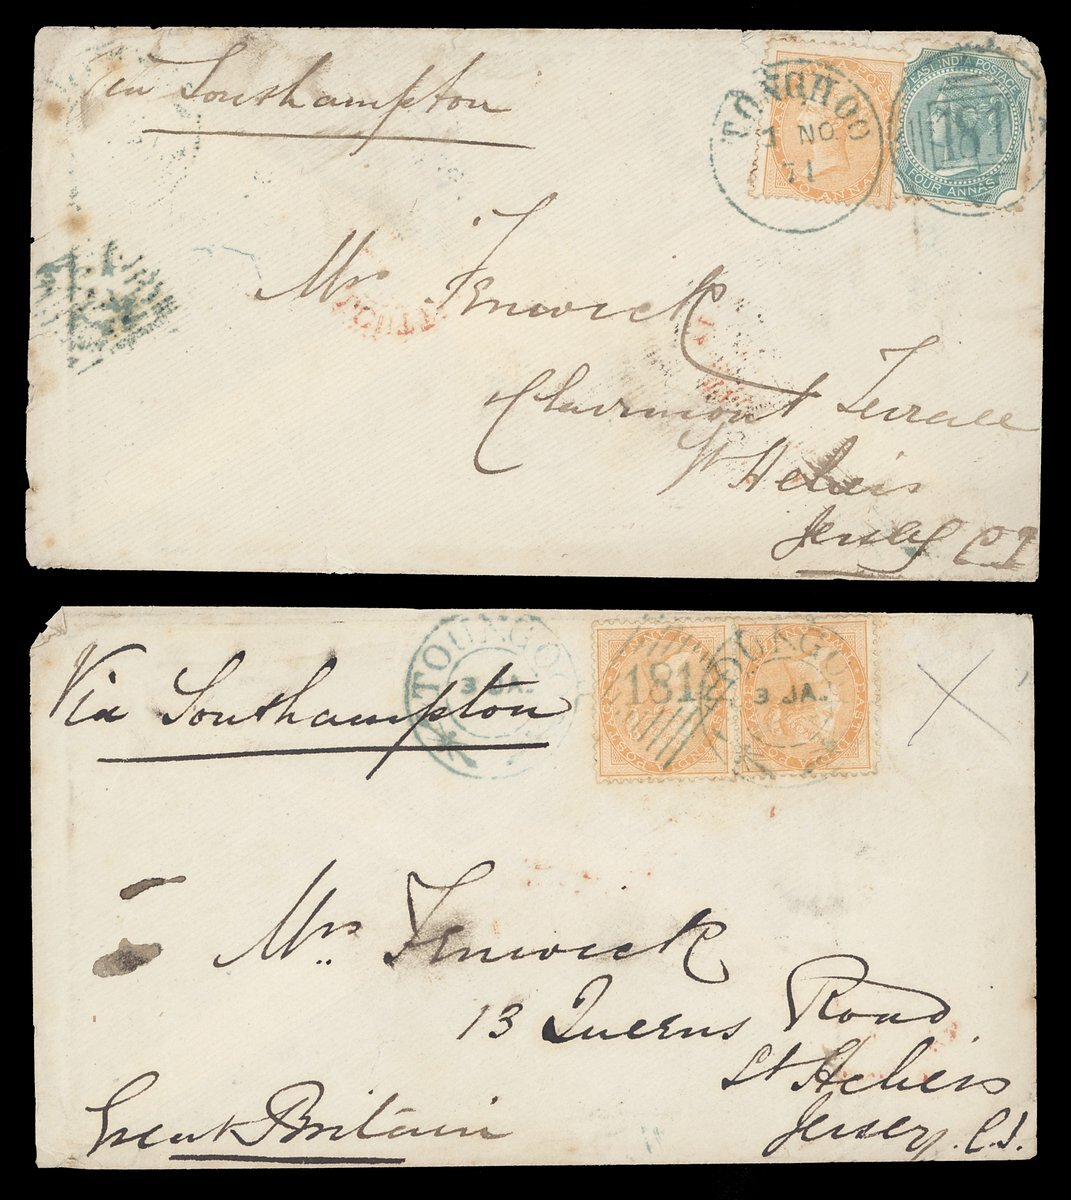 Via Southampton
TONGHOO
1 NO
71
EAST INDIA POSTAGE
FOUR ANNAS
181
Mrs Fenwick
Clairmont Terrace
St Heliers
Jersey C I
Via Southampton
TOUNGOO
3 JA.
181
TOUNGOO
3 JA.
Mrs Fenwick
13 Queens Road
St Heliers
Jersey. C.I.
Great Britain